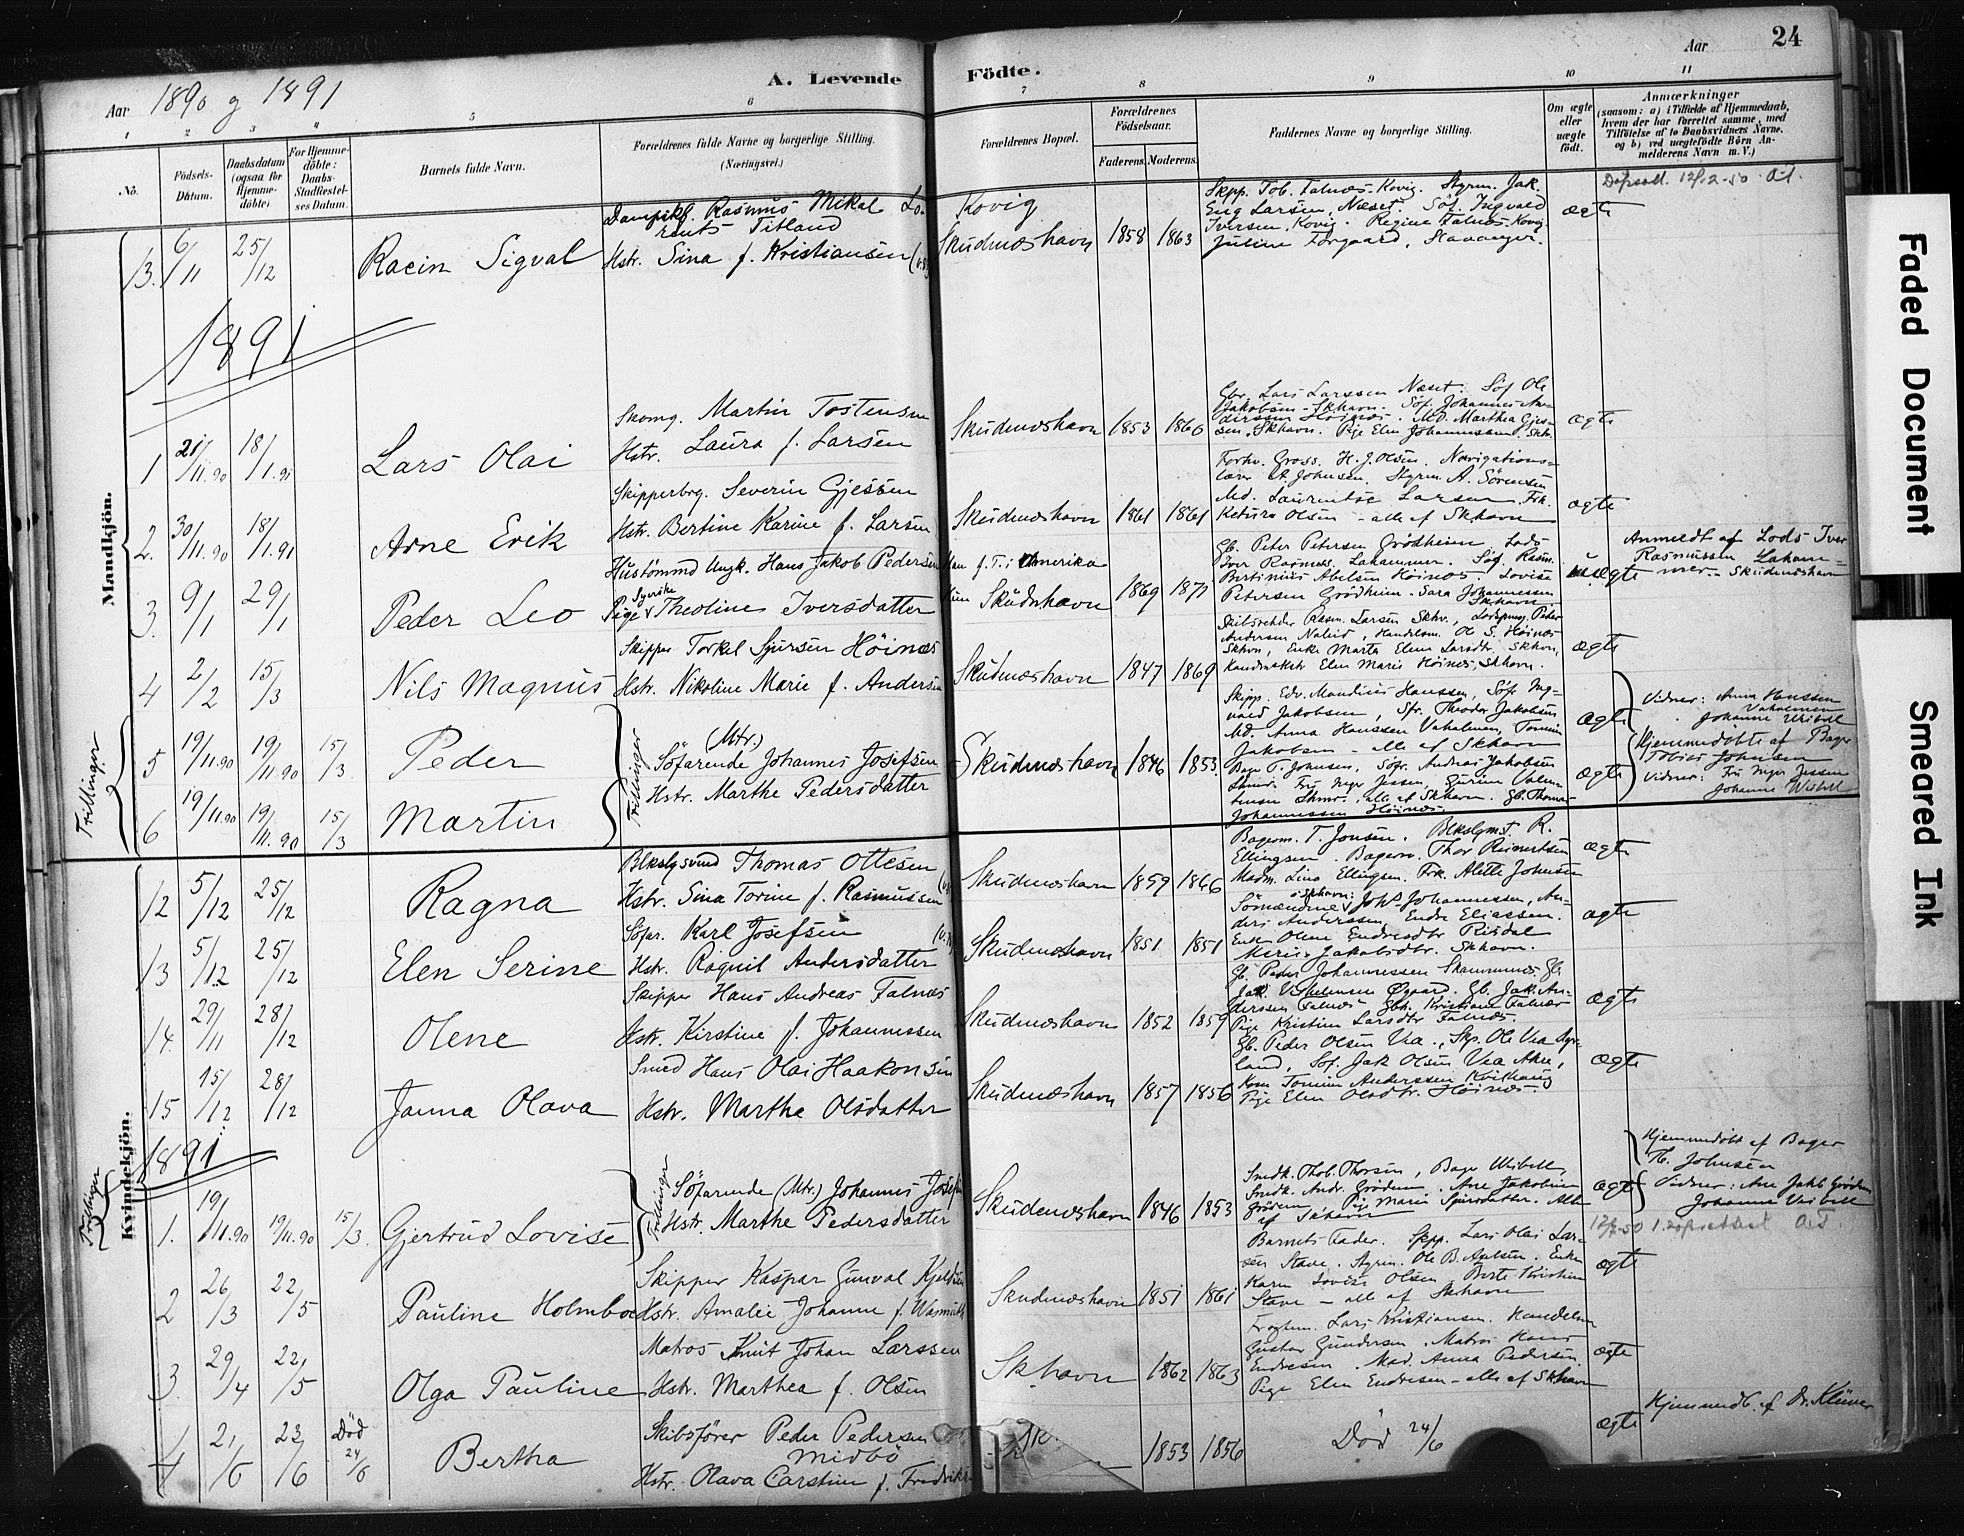 24
Aar 1890 g 1891
A. Levende Födte.
Aar
1 2 3 4 5 6 7 8 9 10 11
No.
Födsels-Datum.
Daabsdatum (ogsaa for Hjemmedöbte)
For Hjemmedöbte: Daabs-Stadfæstelses Datum.
Barnets fulde Navn.
Forældrenes fulde Navne og borgerlige Stilling. (Næringsvei.)
Forældrenes Bopæl.
Forældrenes Födselsaar.
Faderens. Moderens.
Faddernes Navne og borgerlige Stilling.
Om ægte eller uægte födt.
Anmærkninger
(saasom: a) i Tilfælde af Hjemmedaab, hvem der har forrettet samme, med Tilföielse af to Daabsvidners Navne, og b) ved uægtefödte Börn Anmelderens Navn m. V.)
Mandkjön.
13. 6/11 25/12 Racin Sigval
Rasmus Mikal Lorents Titland
Hstr. Sina f. Kristiansen
Kovig
Skudneshavn 1858 1863
Skpp. Tob. Falnæs Kovig. Styrm. Jak.
Eng Larsen, Næset. Söf. Ingvald
Iversen, Kovig. Regine Falnæs Kovig
Juline Forgaard, Stavanger.
ægte
1891
1 21/11.90 18/1.91 Lars Olai
Skomg. Martin Tostensen
Hstr. Laura f. Larsen
Skudneshavn 1853 1866
Gbr. Lars Larssen Næset. Söf Ole
Jakobsen Skhavn. Söf. Johannes An-
derssen Höinæs. Md. Marthea Gjes-
sen, Skhavn. Pige Elen Johannessen, Skhv.
ægte
2. 30/11.90 18/1.91 Arne Erik
Skipperbrg. Severin Gjessen
Hstr. Bertine Karine f. Larsen
Skudneshavn 1861 1861
Forhv. Gross. H. J. Olsen. Navigations-
lærer St. Johnsen, Styrm. A. Sörensen
Md. Larsen, Frk.
Ketura Olsen - alle af Skhavn
ægte
3. 9/1 29/1 Peder Leo
Ungk. Hans Jakob Pedersen
Pige Theoline Iversdatter
Han f. T. i Amerika
Hun Skudnhavn 1869 1871
Gb. Peter Petersen Grödheim, Lods
Iver Rasmus. Lahammer. Söf Rasm.
Bertinius Abelsen Höinæs. Lovise
Petersen Grödheim. Sara Johannessen
Skhavn
uægte
Anmeldt af Lods Iver
Rasmussen Laham-
mer. Skudneshavn
4 2/2 15/3 Nils Magnus
Skipper Torkel Sjursen Höinæs
Hstr. Nikoline Marie f. Andersen
Skudneshavn 1847 1869
Skibsreder Rasm. Larsen Skhv., Peder
Andersen, Handelsm. O. S. Höinæs
Skhvn, Enke Marta Elene Larsdtr. Skhvn,
Elen Marie Höinæs, Skhavn.
ægte
Trillinger
5 19/11.90 19/11.90 15/3. Peder
6 19/11.90 19/11.90 15/3 Martin
Trillinger
(Mtr.)
Söfarende Johannes Josefsen
Hstr. Marthe Pedersdatter
Skudneshavn 1846 1853.
Skipp. Edv. Mandius Hanssen, Söf. Ing-
vald Jakobsen, Sfr. Theodor Jakobsen
Md. Anna Hanssen Vaholmen, Tomine
Jakobsen - alle af Skhavn
ægte
Vidner: Anna Hanssen
Vaholmen
Johanne Wibell
Bager T. Johnsen, Söfr. Andreas Jakobsen
Fru Inger Jessen, Gurine Valen-
tinsen, alle af Skhavn. Gb. Thomas
Johannessen Höinæs.
ægte
Hjemmedöbte af Bager
Tobias Johnsen
Vidner: Fru Inger Jessen
Johanne Wibell
Kvindekjön.
12 5/12 25/12 Ragna
Blkslgsvend Thomas Ottesen
Hstr. Sina Torine f. Rasmussen
Skudneshavn 1859 1866
Bagerm. T. Jonsen. Blkslgmst. R.
Ellingsen. Bagersv. Thor Reinertsen
Madm. Lina Ellingsen. Frk. Alette Johnsen
i Skhavn.
ægte
13 5/12 25/12 Elen Serine
Söfar. Karl Josefsen
Hstr. Ragnil Andersdatter
Skudneshavn 1851 1851
Sömændene Johs Johannessen, An-
ders Anderssen, Endre Eliassen.
Enke Olene Endresdtr Risdal
Jakobsdtr. Skhavn.
ægte
14. 29/11 28/12 Olene
Skipper Hans Andreas Falnæs
Hstr. Kirstine f. Johannessen
Skudneshavn 1852 1859
Gb. Peder Johannessen Gb.
Jak. Vilhelmsen Øgaard. Gb. Jak. An-
derssen Falnæs. Gbr. Kristiane Falnæs
Pige Kristine Larsdtr Falnæs.
ægte
15 15/12 28/12 Janna Olava
Smed Hans Olai Haakonsen
Hstr. Marthe Olsdatter
Skudneshavn 1857 1856
Gb. Peder Olsen Vea, Skp. Ole Vea
land, Söf. Jak Olsen Vea
Kone Tomine Anderssen
Pige Elen Olsdtr. Höinæs.
ægte
1891
Trillinger
1. 19/11.90 19/11.90 15/3. Gjertrud Lovise
Trillinger
Söfarende (Mtr.) Johannes Josefsen
Hstr. Marthe Pedersdatter
Skudneshavn 1846 1853
Smdk. Thob. Thorsen, Bager Wibell,
Smdk. Andr. Grödem. Ane Jakobine
Grödem. Pig Marie Sjursdatter. Alle
af Skhavn
ægte
Hjemmedöbt af Bager
Th. Johnsen
Vidner: Ane Jakb Grödem
Johanne Wibell
2 26/3 22/5 Pauline Holmboe
Skipper Kaspar Gunval Kjeldsen
Hstr. Amalie Johanne f. Warmuth
Skudneshavn 1851 1861
Barnets Fader. Skpp. Lars Olai Lar-
sen Stave. Styrm. Ole B. Aulsen. Enke
Karen Lovise Olsen, Berte Kristine
Stave - alle af Skhavn
ægte
3. 29/4 22/5 Olga Pauline
Matros Knut Johan Larssen
Hstr. Marthea f. Olsen
Skhavn 1862 1863
Lars Kristiansen. Handelsm
Gustav Gundersen. Matros Hans
Endresen. Mad. Anna Pedersen
Pige Elen Endresen - alle af Skhavn
ægte
4 21/6 23/6 Död 24/6 Bertha
Skibsförer Peder Pedersen
Midbö
Hstr. Olava Carstine f. Fredriksen
1853 1856
Död 24/6
ægte
Hjemmedb. af Dr. Klüwer
Faded Document
Smeared Ink